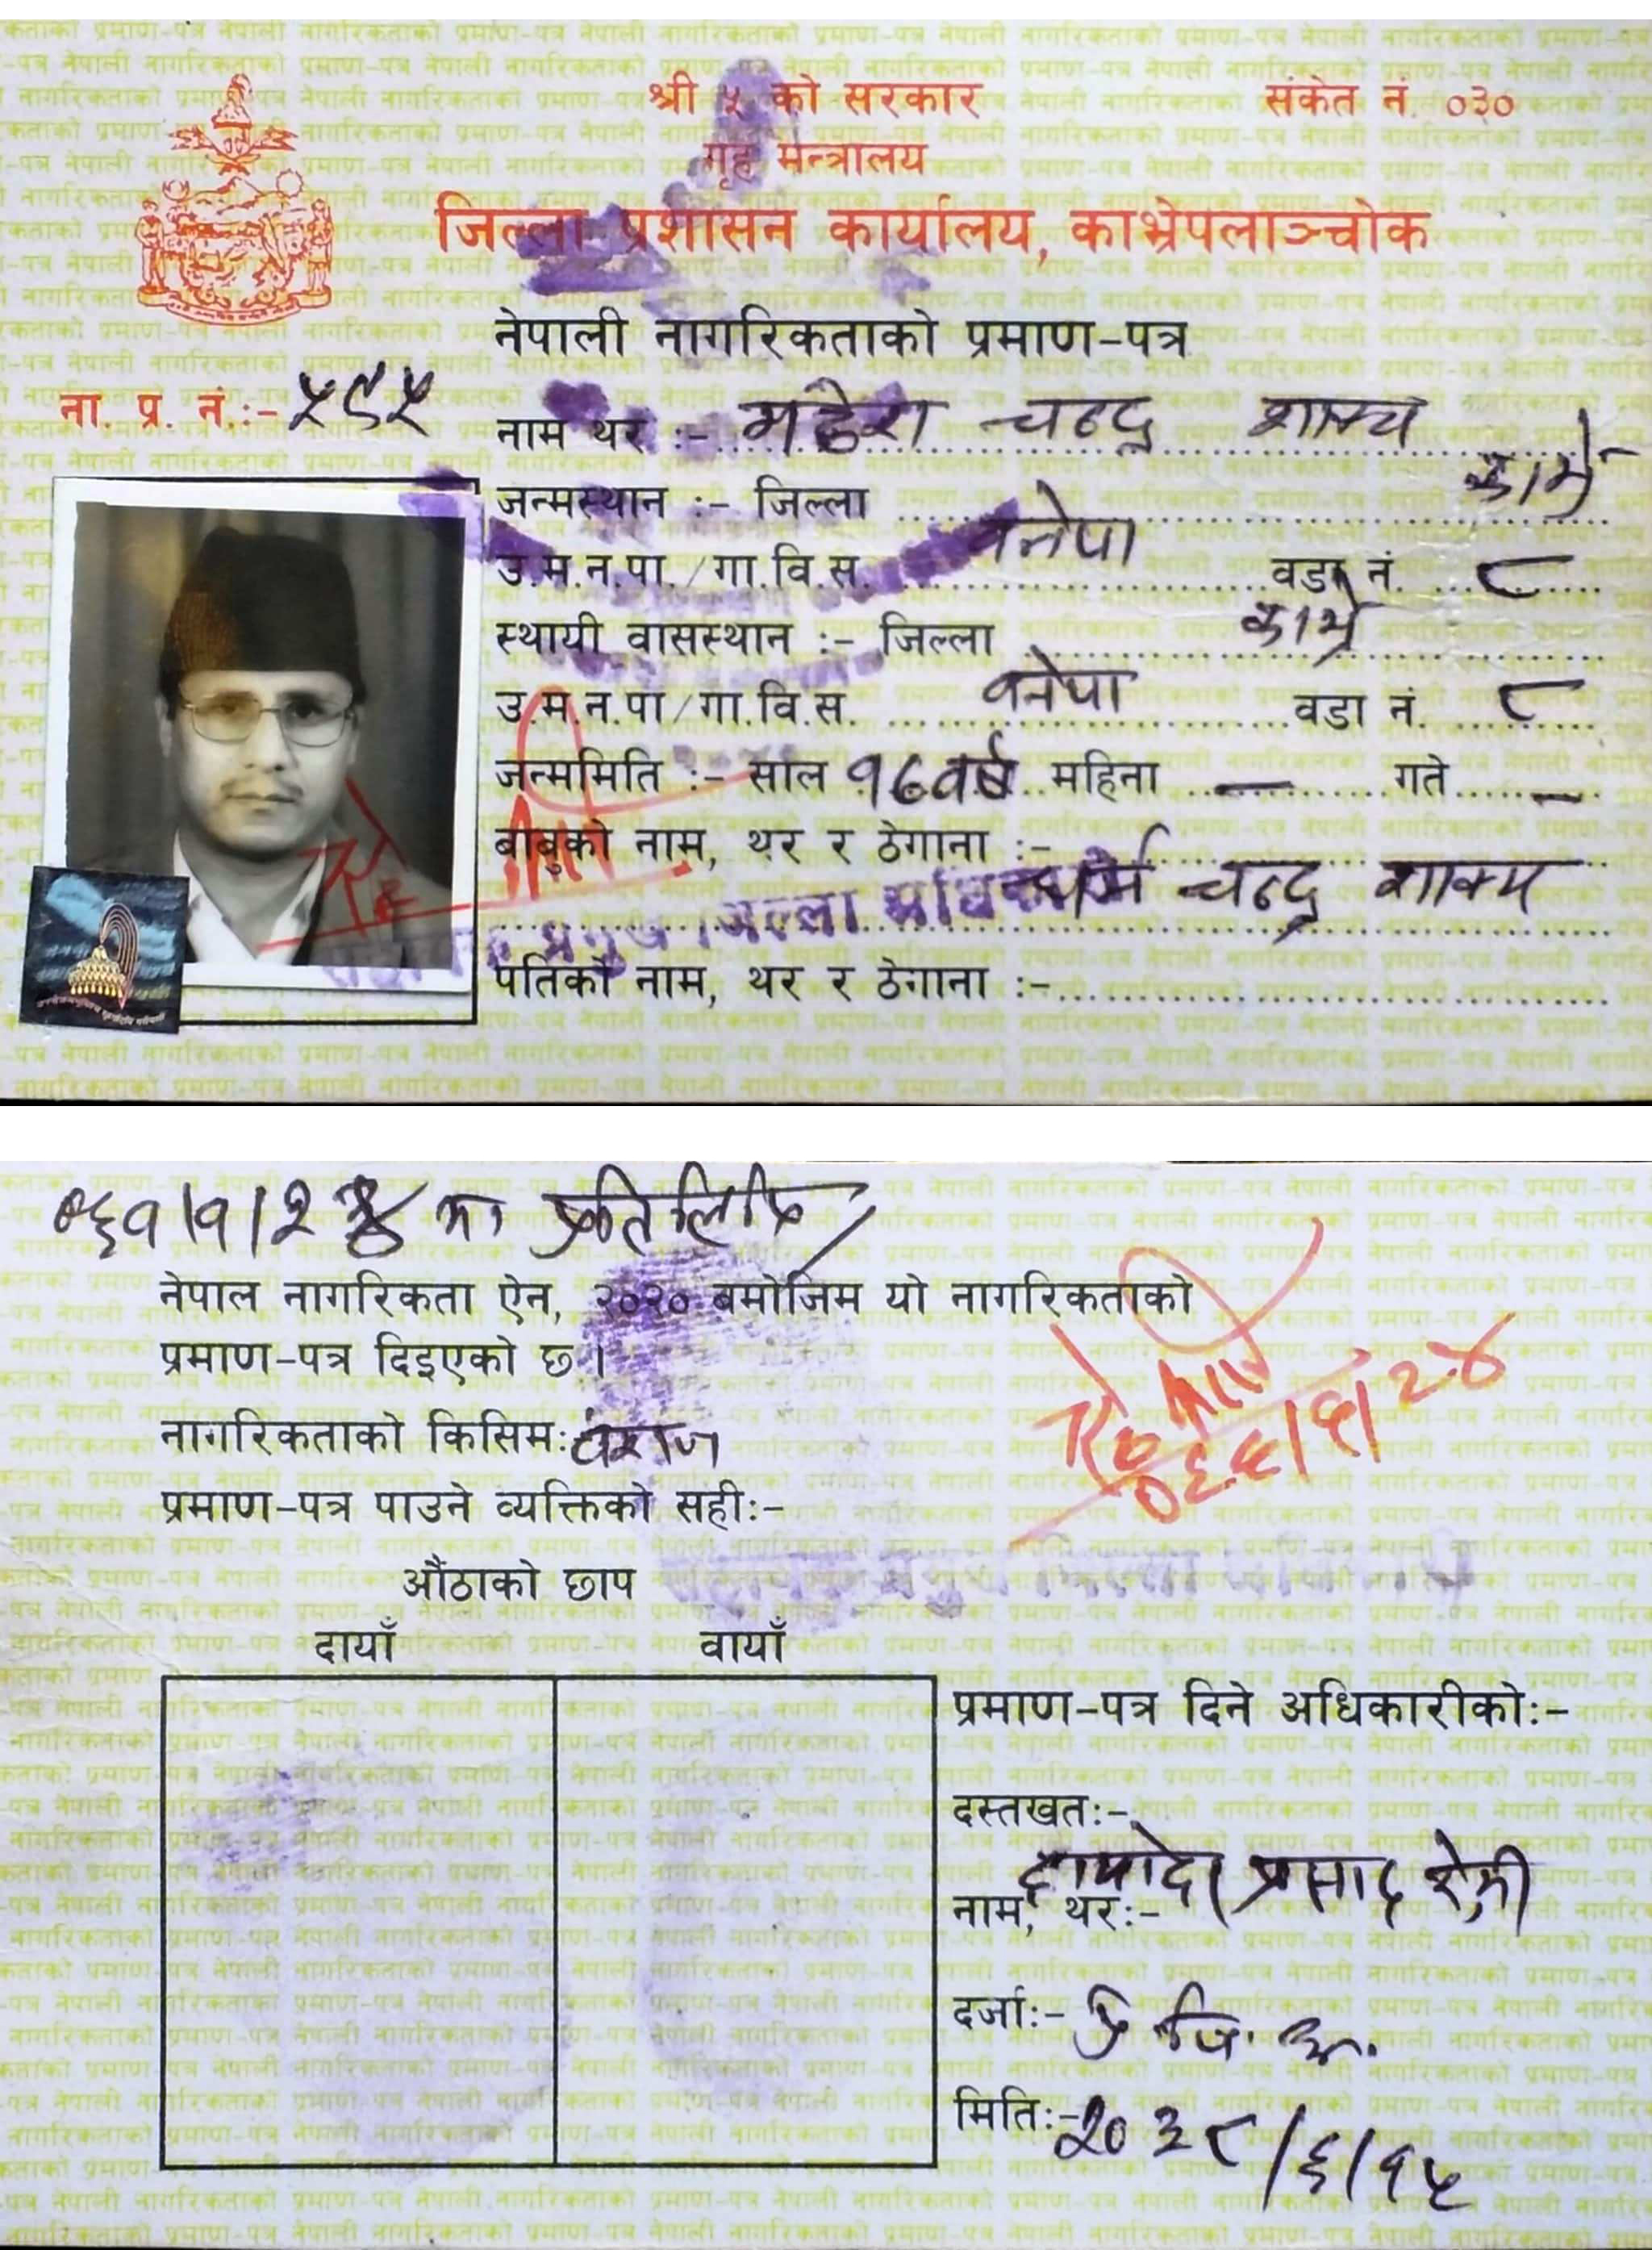 श्री ५ को सरकार
संकेत नं. ०३०
गृह मन्त्रालय
जिल्ला प्रशासन कार्यालय, काभ्रेपलाञ्चोक
नेपाली नागरिकताको प्रमाण-पत्र
ना. प्र. नं.:- ५९५
नाम थर :- महेश चन्द्र शाक्य
जन्मस्थान :- जिल्ला काभ्रे
उ.म.न.पा./गा.वि.स. वनेपा वडा नं. ८
स्थायी वासस्थान :- जिल्ला काभ्रे
उ.म.न.पा/गा.वि.स. वनेपा वडा नं. ८
जन्ममिति :- साल १८ वर्ष महिना — गते —
बाबुको नाम, थर र ठेगाना :-
धर्म चन्द्र शाक्य
पतिको नाम, थर र ठेगाना :-
०६१।१।२ मा प्रतिलिपि
नेपाल नागरिकता ऐन, २०२० बमोजिम यो नागरिकताको
प्रमाण-पत्र दिइएको छ।
नागरिकताको किसिम: वंशज
प्रमाण-पत्र पाउने व्यक्तिको सही:-
औंठाको छाप
दायाँ वायाँ
प्रमाण-पत्र दिने अधिकारीको:-
दस्तखत:-
नाम, थर:- प्रसाद
दर्जा:- प्र. जि. अ.
मिति:- २०३८/६/१५